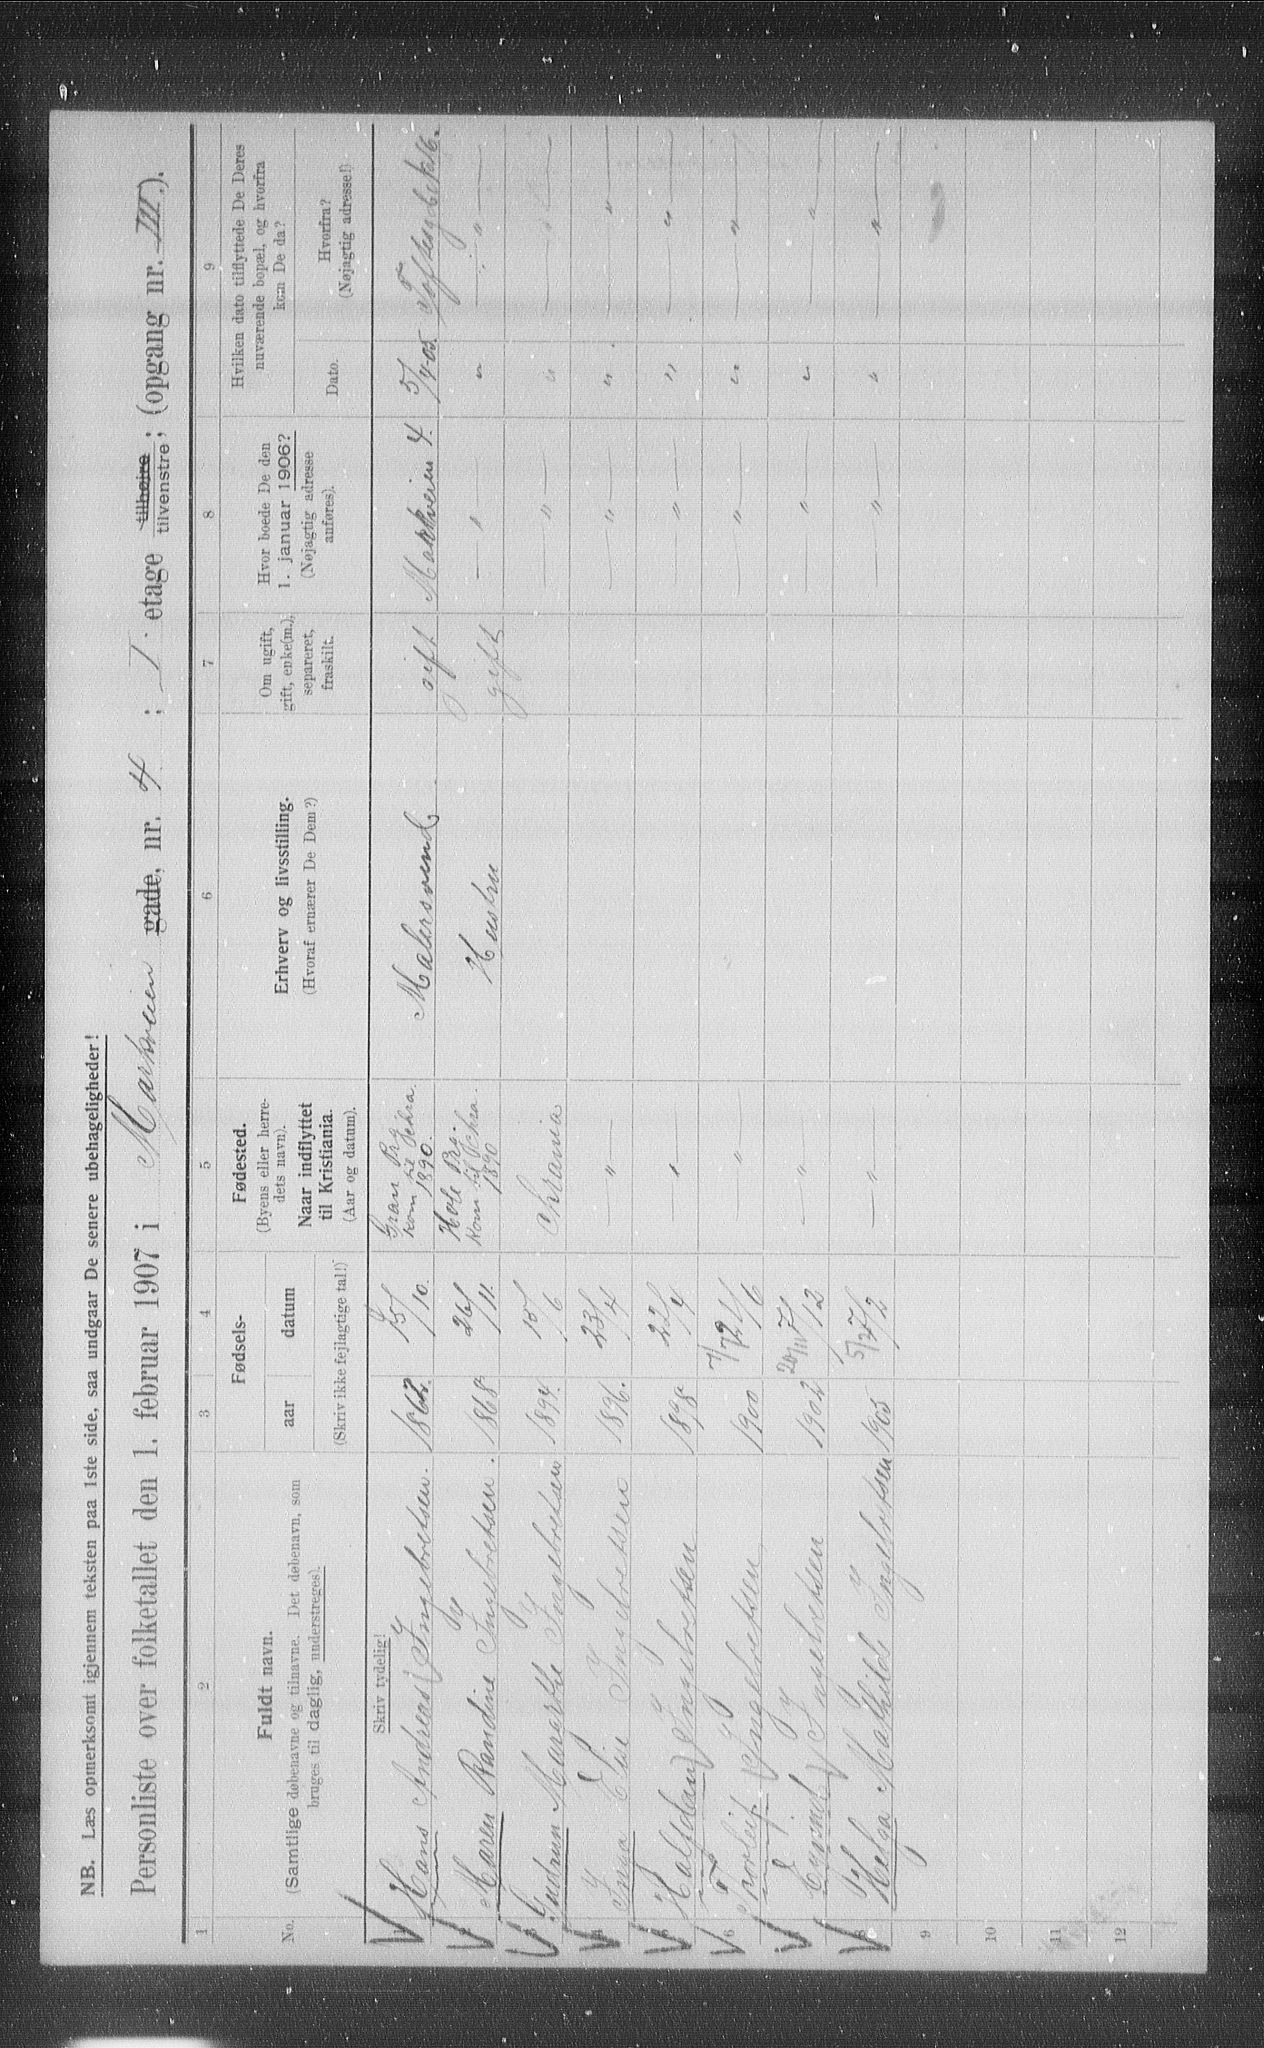 NB. Læs opmerksomt igjennem teksten paa 1ste side, saa undgaar De senere ubehageligheder!
Personliste over folketallet den 1. februar 1907 i Markveien gade, nr. 4; I etage tilhøire tilvenstre; (opgang nr. III).
1 2 3 4 5 6 7 8 9
No.
Fuldt navn.
(Samtlige døbenavne og tilnavne. Det døbenavn, som
bruges til daglig, understreges).
Fødsels-
aar datum
(Skriv ikke fejlagtige tal!)
Fødested.
(Byens eller herre-
dets navn).
Naar indflyttet
til Kristiania.
(Aar og datum).
Erhverv og livsstilling.
(Hvoraf ernærer De Dem?)
Om ugift,
gift, enke(m.),
separeret,
fraskilt.
Hvor boede De den
1. januar 1906?
(Nøjagtig adresse
anføres).
Hvilken dato tilflyttede De Deres
nuværende bopæl, og hvorfra
kom De da?
Dato. Hvorfra?
(Nøjagtig adresse!)
Skriv tydelig!
1 Hans Andreas Ingebretsen. 1862. 15/10. Gran Prg. kom til Kra. 1890. Malersvend gift Markveien 4. 5/4-05. Toftesgt
2 Maren Randine Ingebretsen. 1868 26/11. Hole Prg. kom til Kra. 1890 Hustru gift — " — " — " —
3 Gudrun Maræthe Ingebretsen 1894. 10/6 Chrania — " — " — " —
4 Inga Elise Ingebretsen 1896. 23/4 — " — — " — " — " —
5 Halfdan Ingebretsen 1898 22/4 — " — — " — " — " —
6 Thorleif Ingebretsen 1900 7/12 21/6 " — " — " — " —
7 Ingebretsen 1902 20/11 7/12 — " — — " — " — " —
8 Helga Mathilde Ingebretsen 1905 5/2 — " — — " — " — " —
9
10
11
12